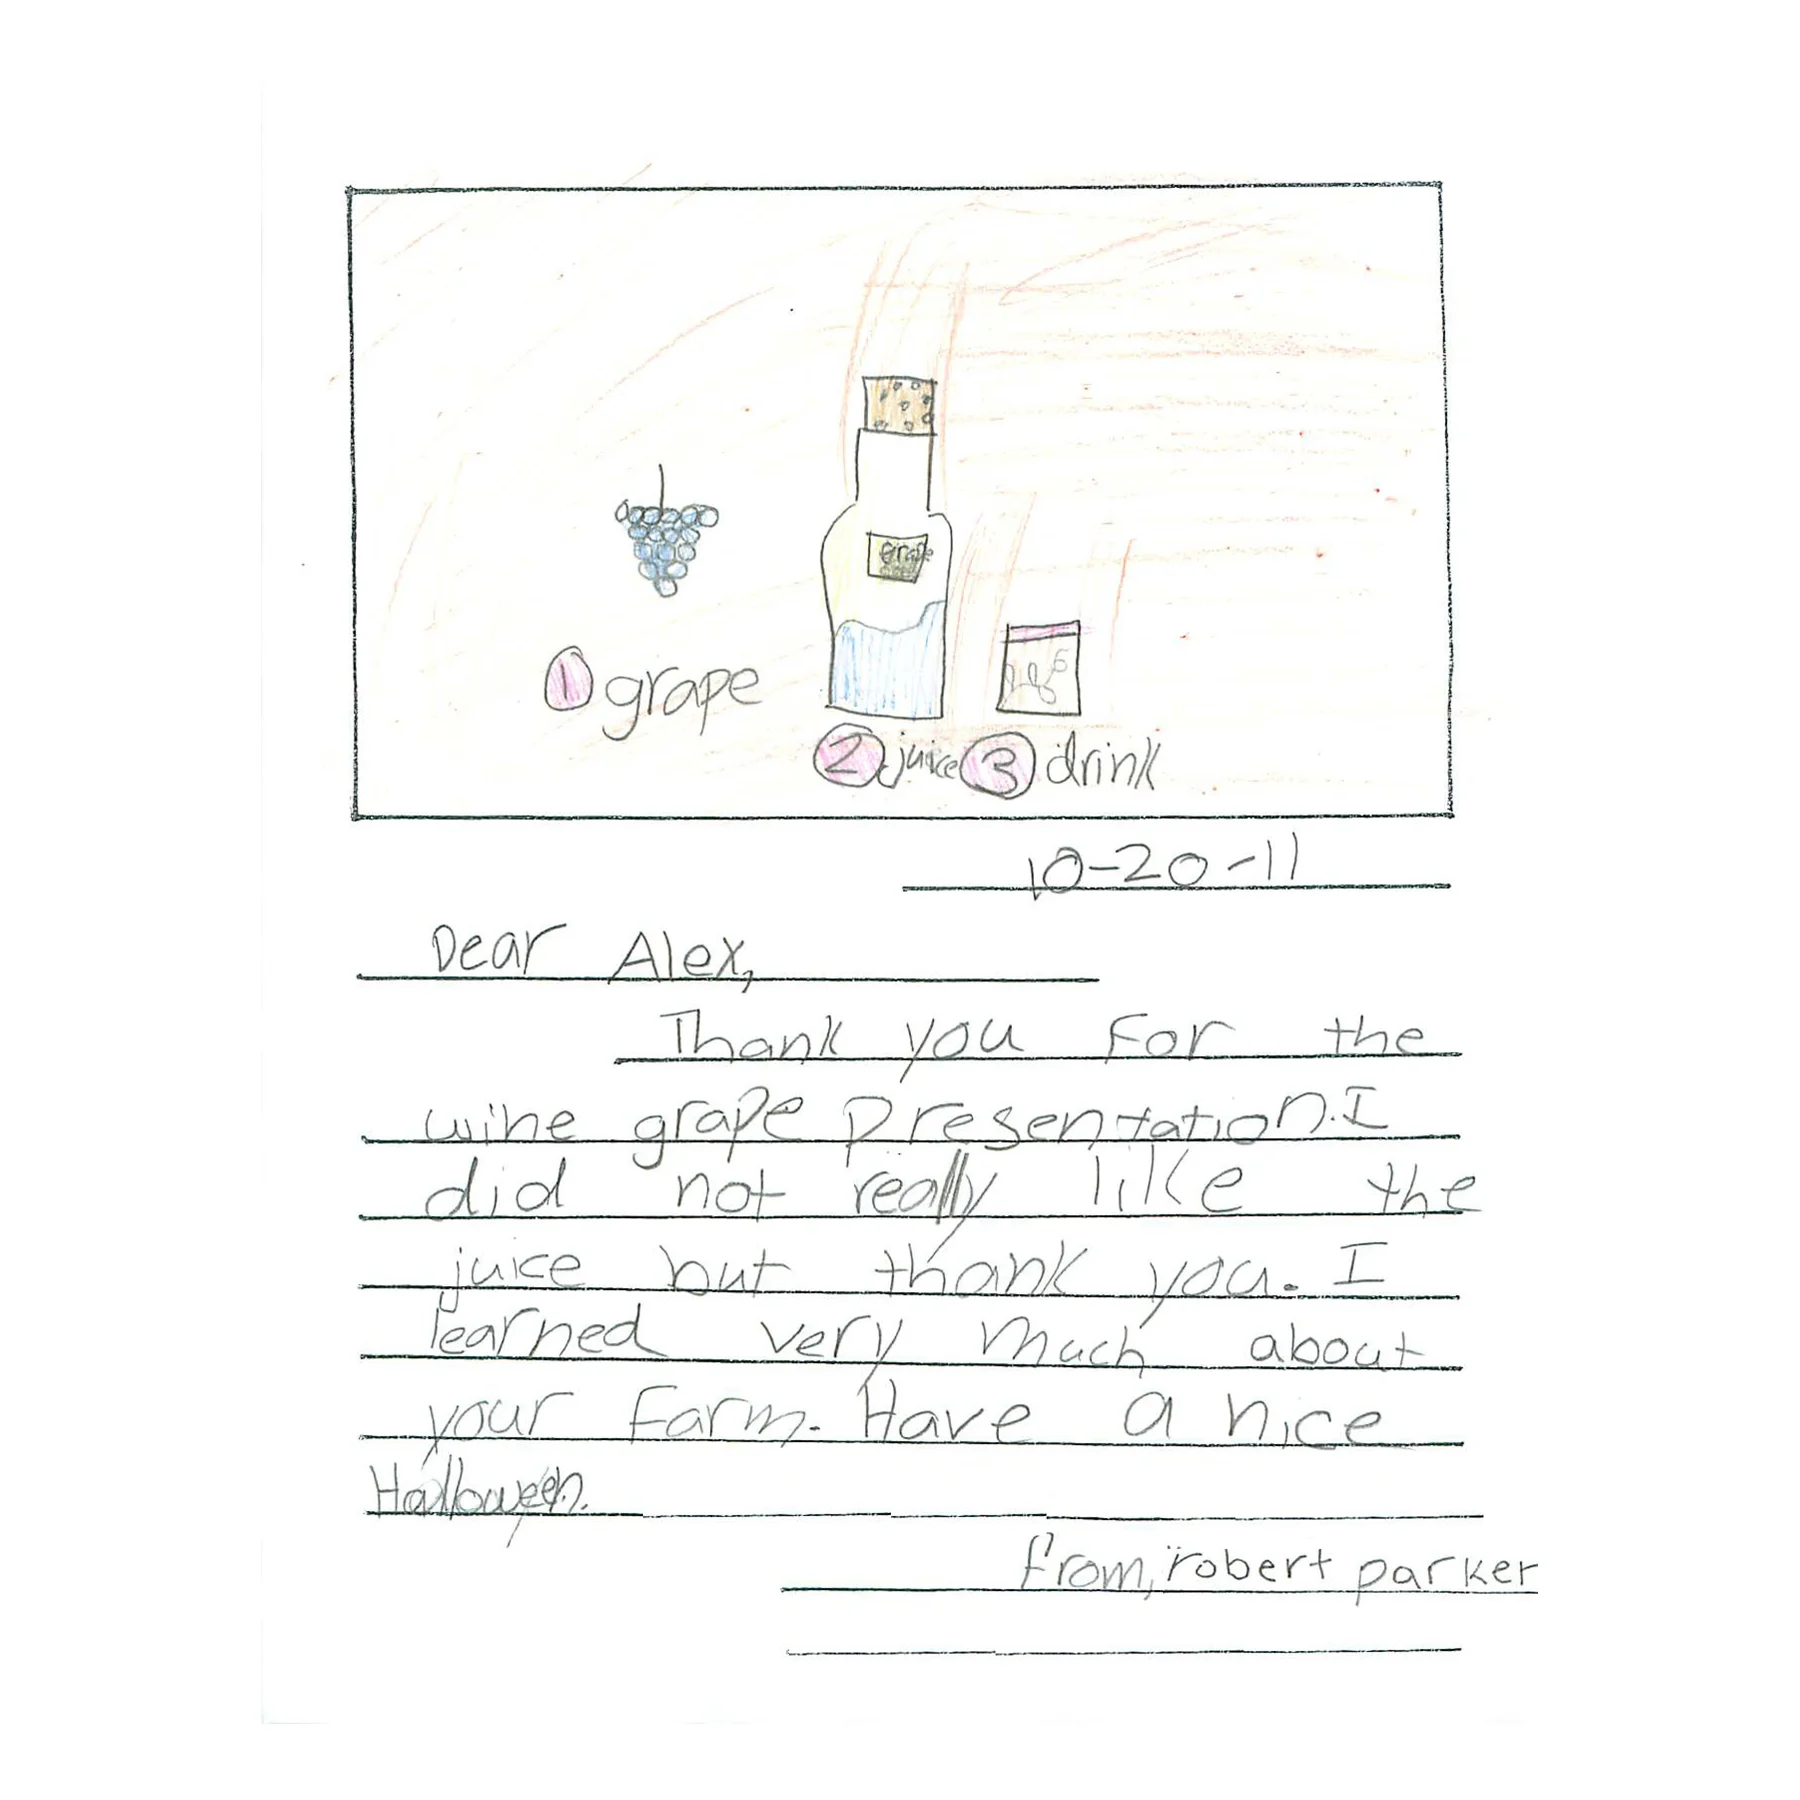 Grape
1 grape
2 juice 3 drink
10-20-11
Dear Alex,
Thank you For the
wine grape presentation. I
did not really like the
juice but thank you. I
learned very much about
your Farm. Have a nice
Halloween.
from, robert parker